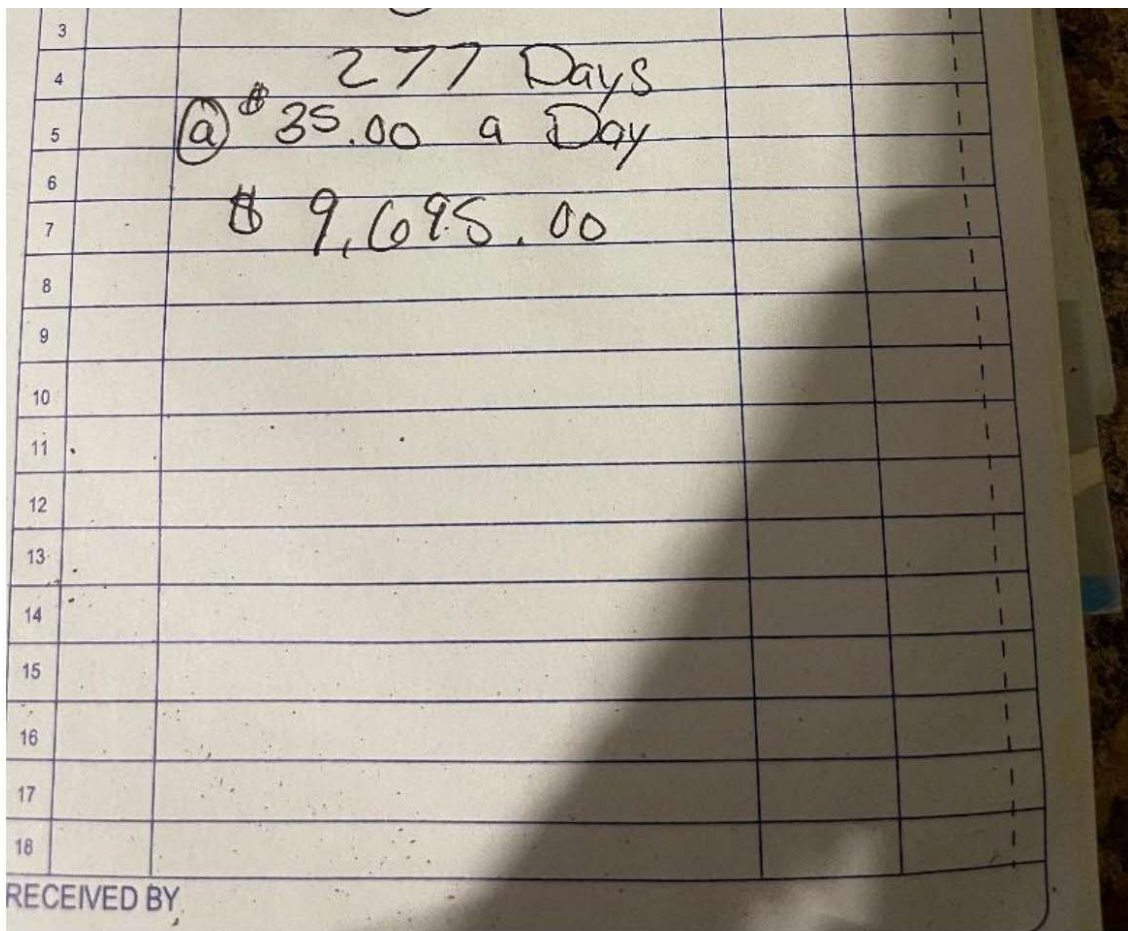 3
4 277 Days
5 @ $35.00 a Day
6
7 $ 9,695.00
8
9
10
11
12
13
14
15
16
17
18
RECEIVED BY